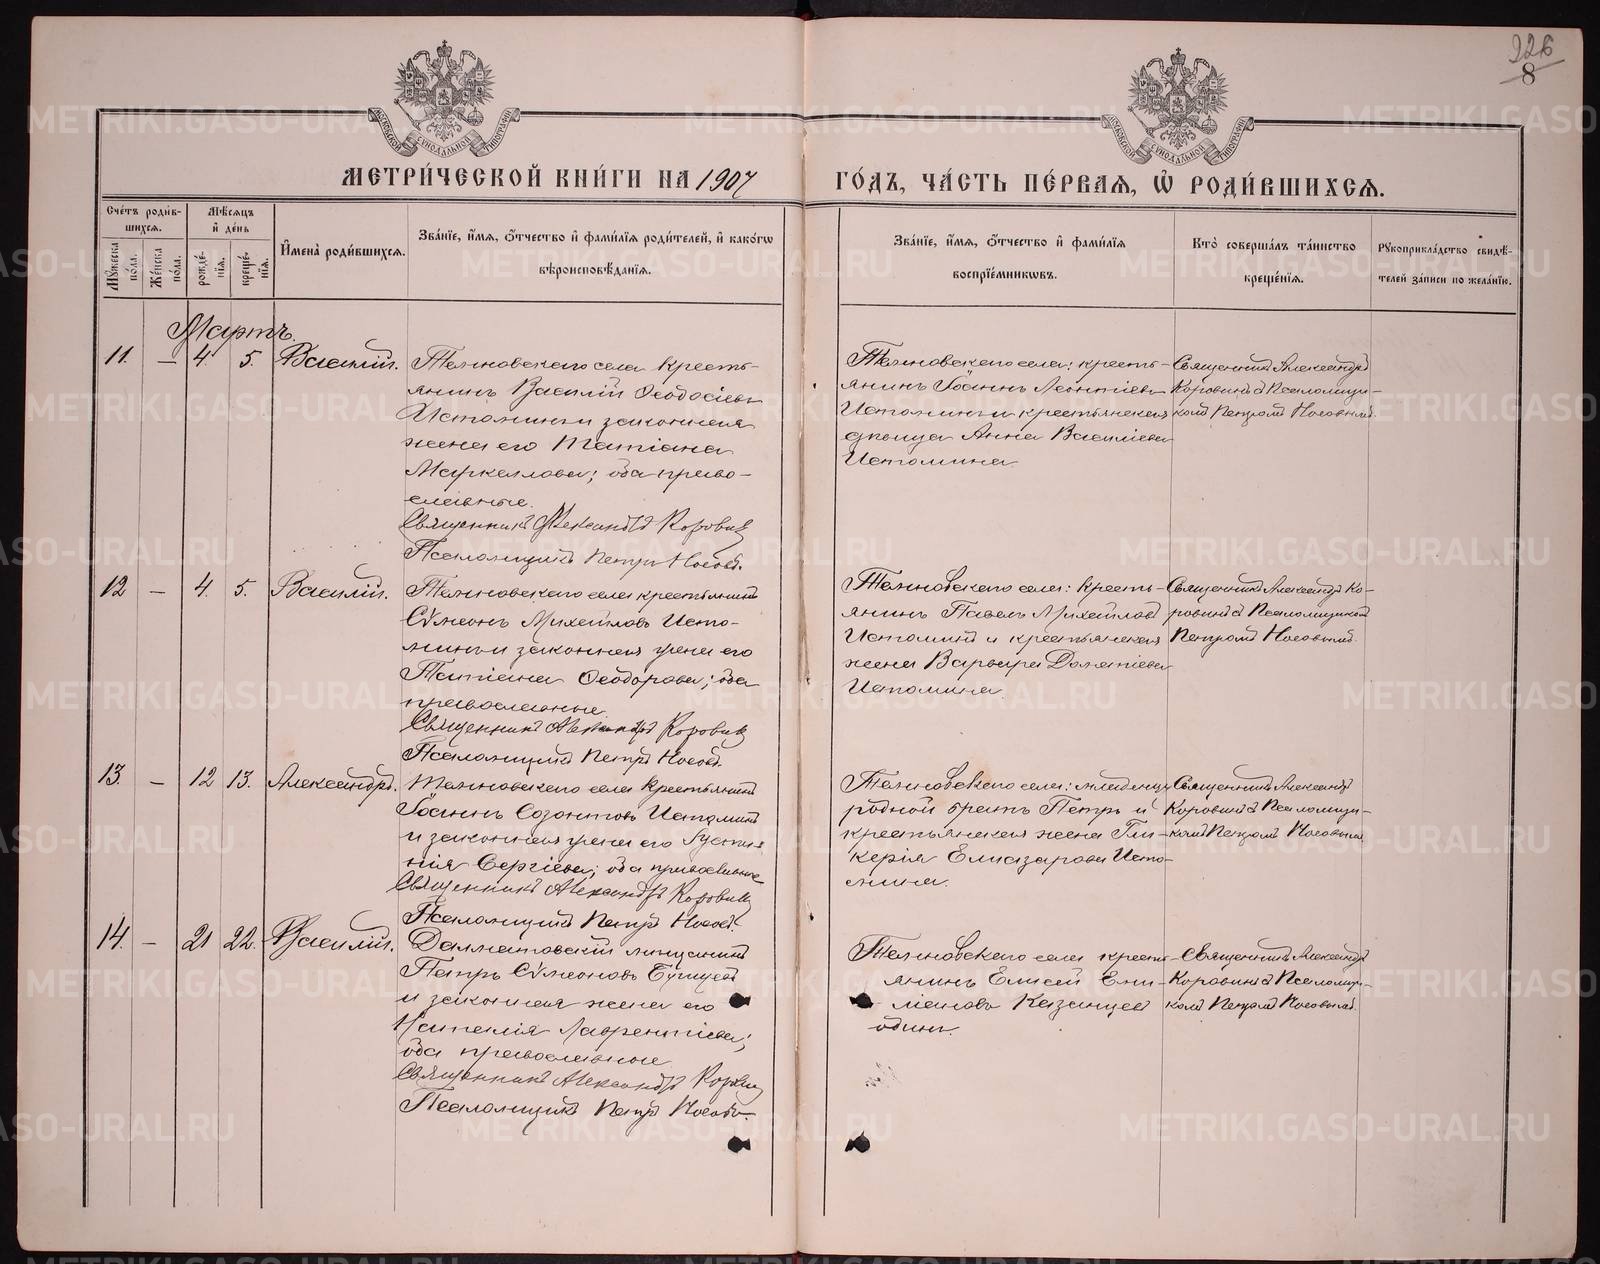 226
8
МЕТРИ́ЧЕСКОЙ КНИ́ГИ НА 1907
ГО́ДЪ, ЧА́СТЬ ПЕ́РВАЯ, Ѽ РОДИ́ВШИХСЯ.
Сче́тъ роди́в-
шихся.
Мѣ́сяцъ
и҆ де́нь
Мꙋ́жеска
по́ла.
Же́нска
по́ла.
рожде́-
нїя.
креще́-
нїя.
И҆мена̀ роди́вшихся.
Зва́нїе, и҆́мя, ѻ҆́тчество и҆ фами́лїя роди́телей, и҆ како́гѡ
вѣроисповѣ́данїя.
Зва́нїе, и҆́мя, ѻ҆́тчество и҆ фами́лїя
воспрїе́мникѡвъ.
Кто̀ соверша́лъ та́инство
креще́нїя.
Рꙋкоприкла́дство свидѣ́-
телей за́писи по жела́нїю.
Мартъ
11. — 4. 5. Василій.
селa кресть-
янинъ Василій Ѳеодосіевъ
Истоминъ и законная
жена его Татіана
Маркеллова; оба право-
славные.
Священникъ Александръ Коровинъ
Псаломщикъ Петръ Носовъ.
села: кресть-
янинъ Іоаннъ Леонтіевъ
Истоминъ и крестьянская
дѣвица Анна Василіева
Истомина.
Священникъ Александръ
Коровинъ съ Псаломщи-
комъ Петромъ Носовымъ.
12 — 4. 5. Василій.
села крестьянинъ
Сѵмеонъ Михайловъ Исто-
минъ и законная жена его
Татіана Ѳеодорова; оба
православные.
Священникъ Александръ Коровинъ
Псаломщикъ Петръ Носовъ.
села: кресть-
янинъ Павелъ Михайловъ
Истоминъ и крестьянская
жена Варвара
Истомина.
Священникъ Александръ Ко-
ровинъ съ Псаломщикомъ
Петромъ Носовымъ.
13. — 12 13. Александръ.
села крестьянинъ
Іоаннъ Созонтовъ Истоминъ
и законная жена его Іустин-
нія Сергіева; оба православные
Священникъ Александръ Коровинъ
Псаломщикъ Петръ Носовъ.
села: младенца
родной братъ Петръ и
крестьянская жена Гли-
керія Елиазарова Исто-
мина.
Священникъ Александръ
Коровинъ съ Псаломщи-
комъ Петромъ Носовымъ.
14. — 21 22. Василій.
Далматовскій мѣщанинъ
Петръ Сѵмеоновъ
и законная жена его
Наталія Лаврентіева;
оба православные
Священникъ Александръ Коровинъ
Псаломщикъ Петръ Носовъ.
села кресть-
янинъ Елисей
Казанцевъ
одинъ.
Священникъ Александръ
Коровинъ съ Псаломщи-
комъ Петромъ Носовымъ.
METRIKI.GASO-URAL.RU